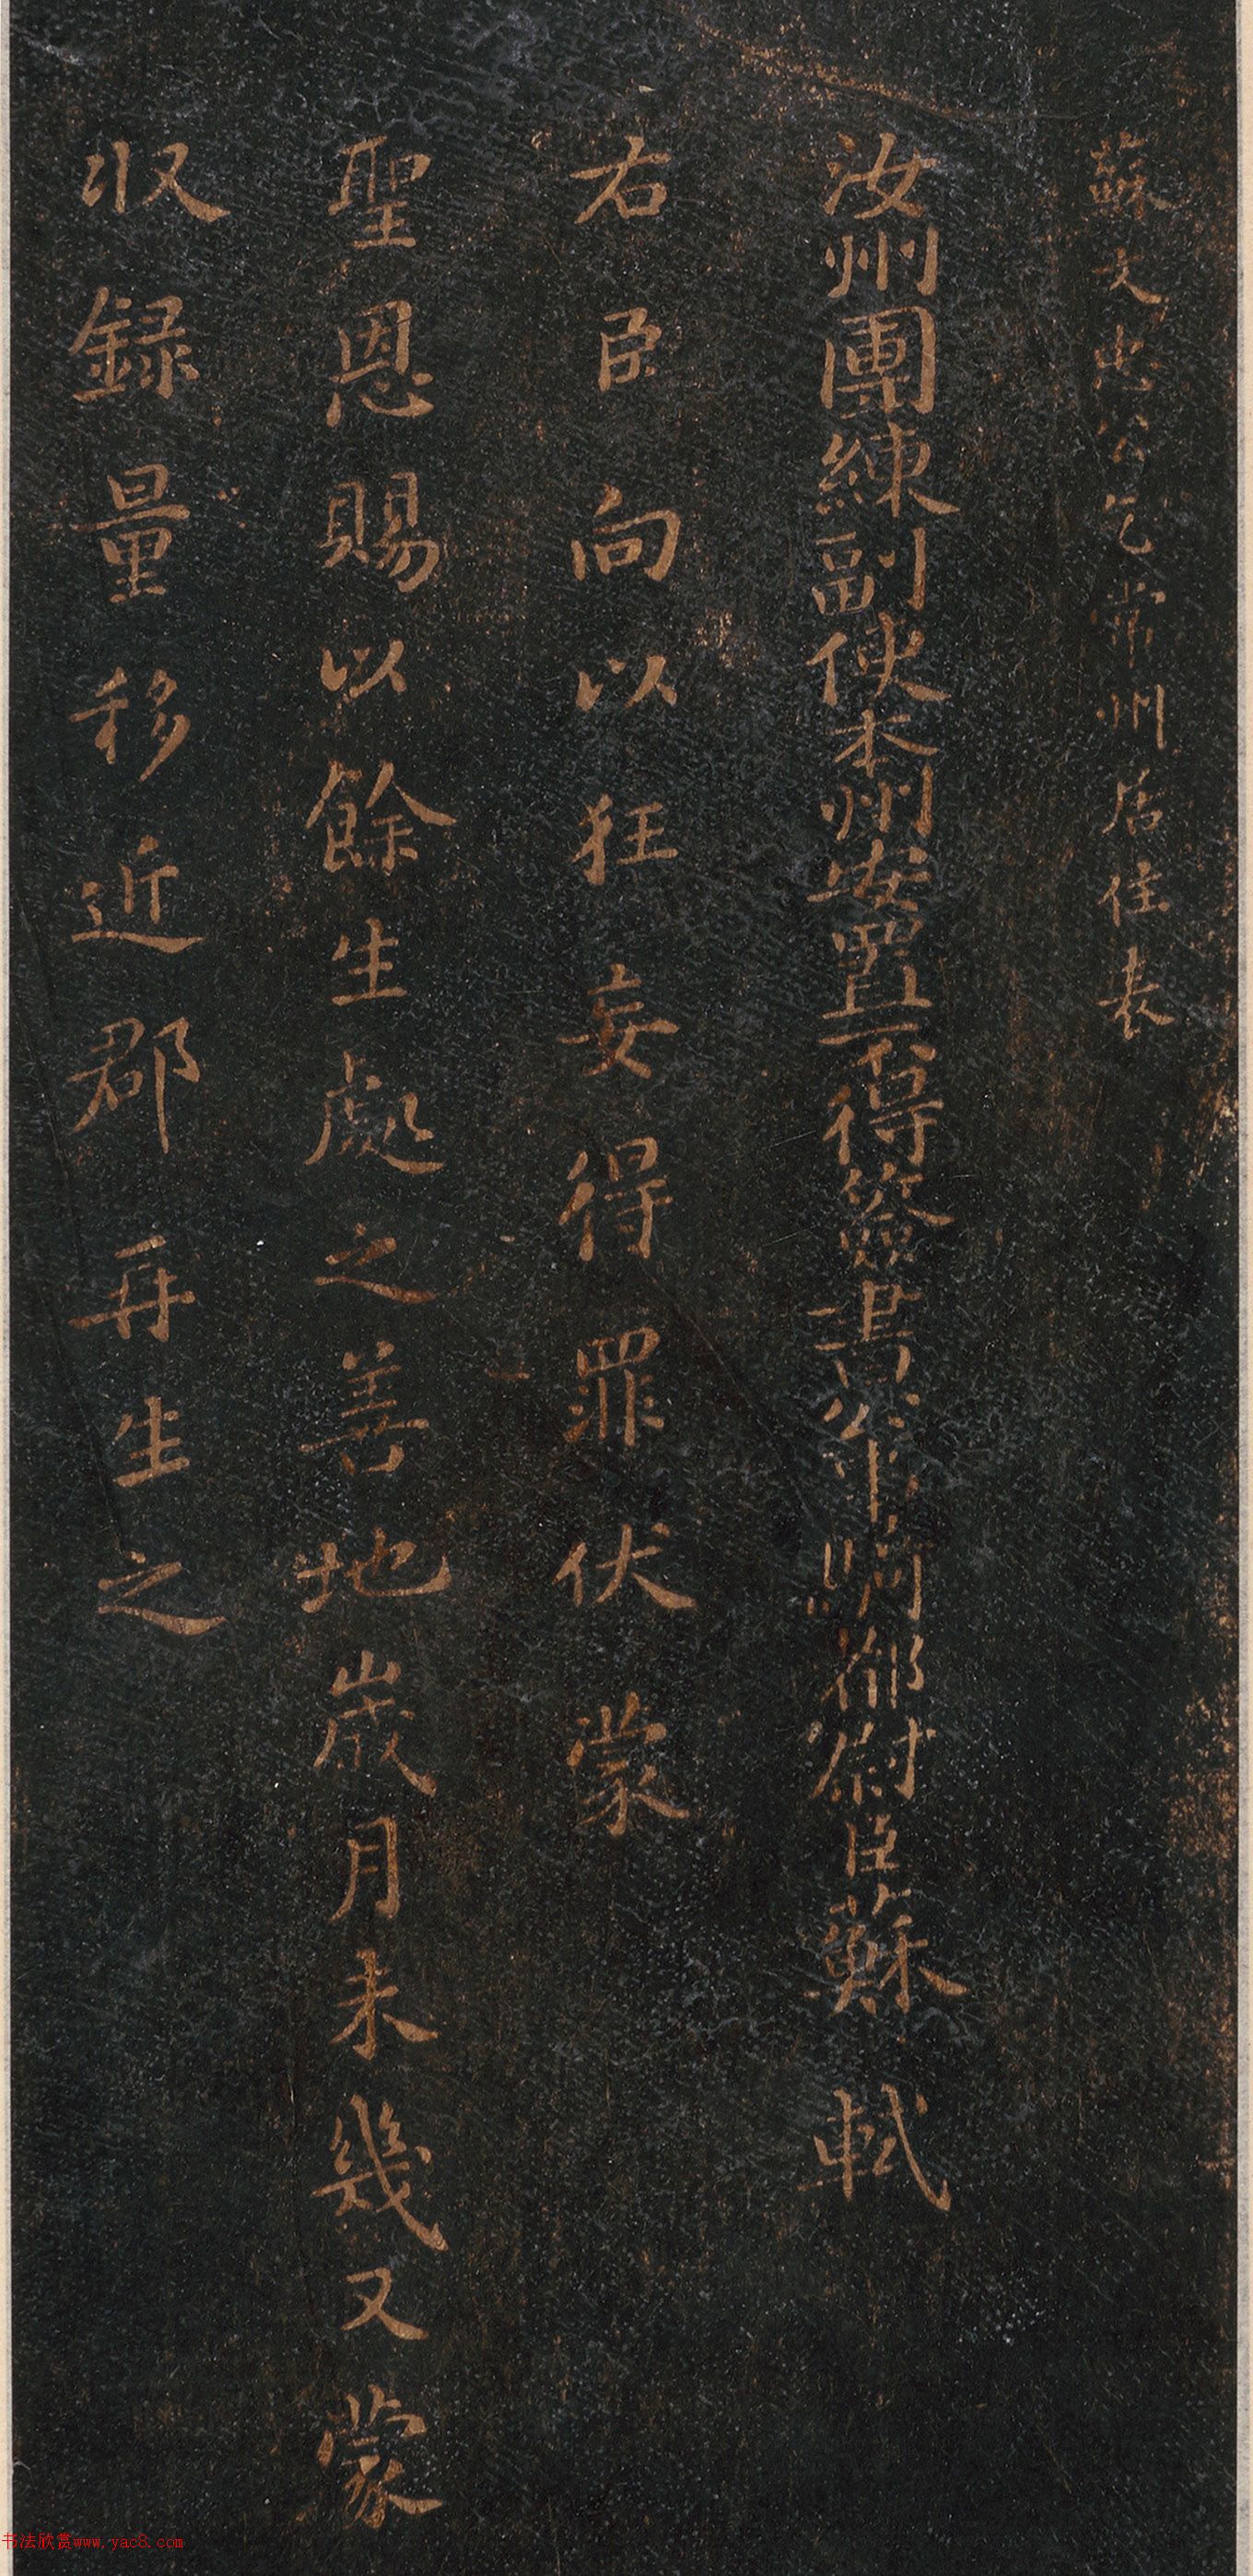 蘇文忠公乞常州居住表
汝州團練副使本州安置不得簽書公事騎都尉臣蘇軾
右臣向以狂妄得罪伏蒙
聖恩賜以餘生處之善地歲月未幾又蒙
收録量移近郡再生之
书法欣赏www.yac8.com